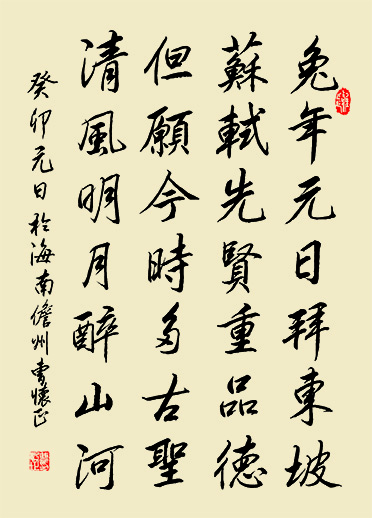 兔年元日拜東坡
蘇軾先賢重品德
但願今時多古聖
清風明月醉山河
癸卯元日於海南儋州曹懷正